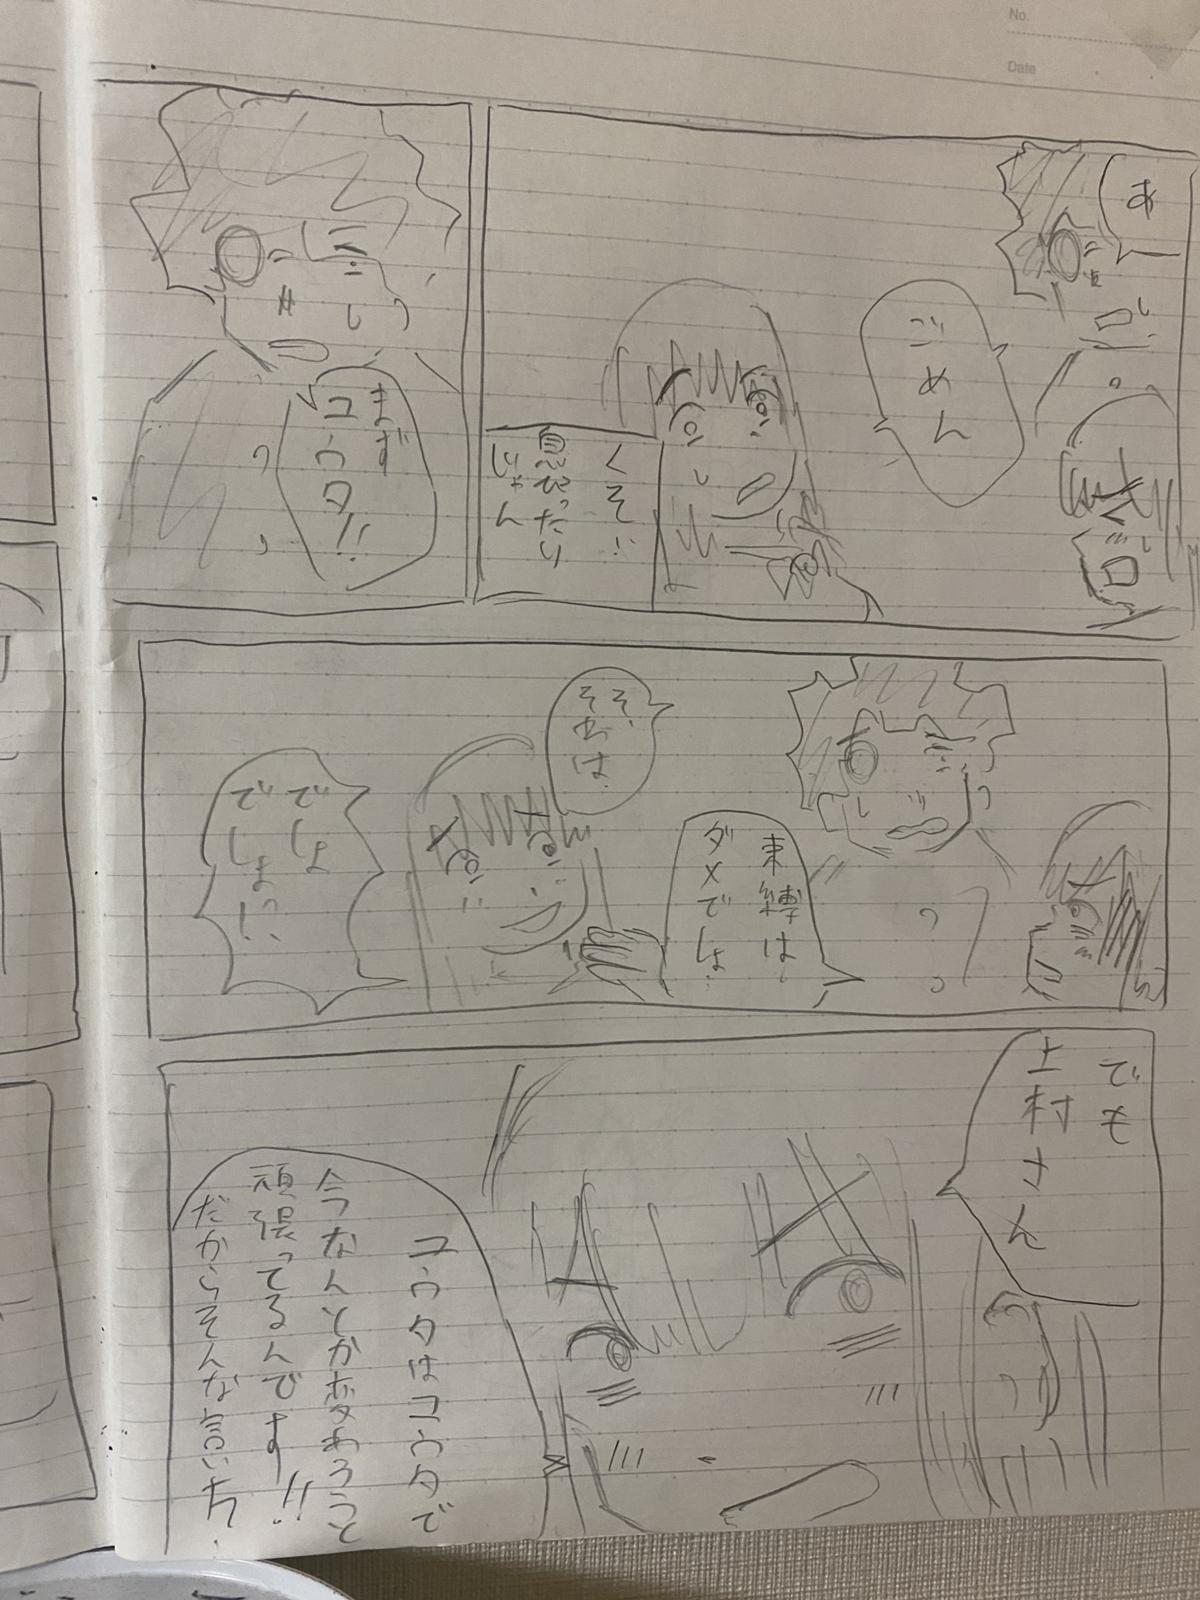 No.
Date
あ
ごめん
くそ!!
息ぴったり
じゃん
まず
コウタ!!
束縛は
ダメでしょ
そ、
それは
でしょ
でしょ!!
でも
上村さん
コウタはコウタで
今なんとか変わろうと
頑張ってるんです!!
だからそんな言い方